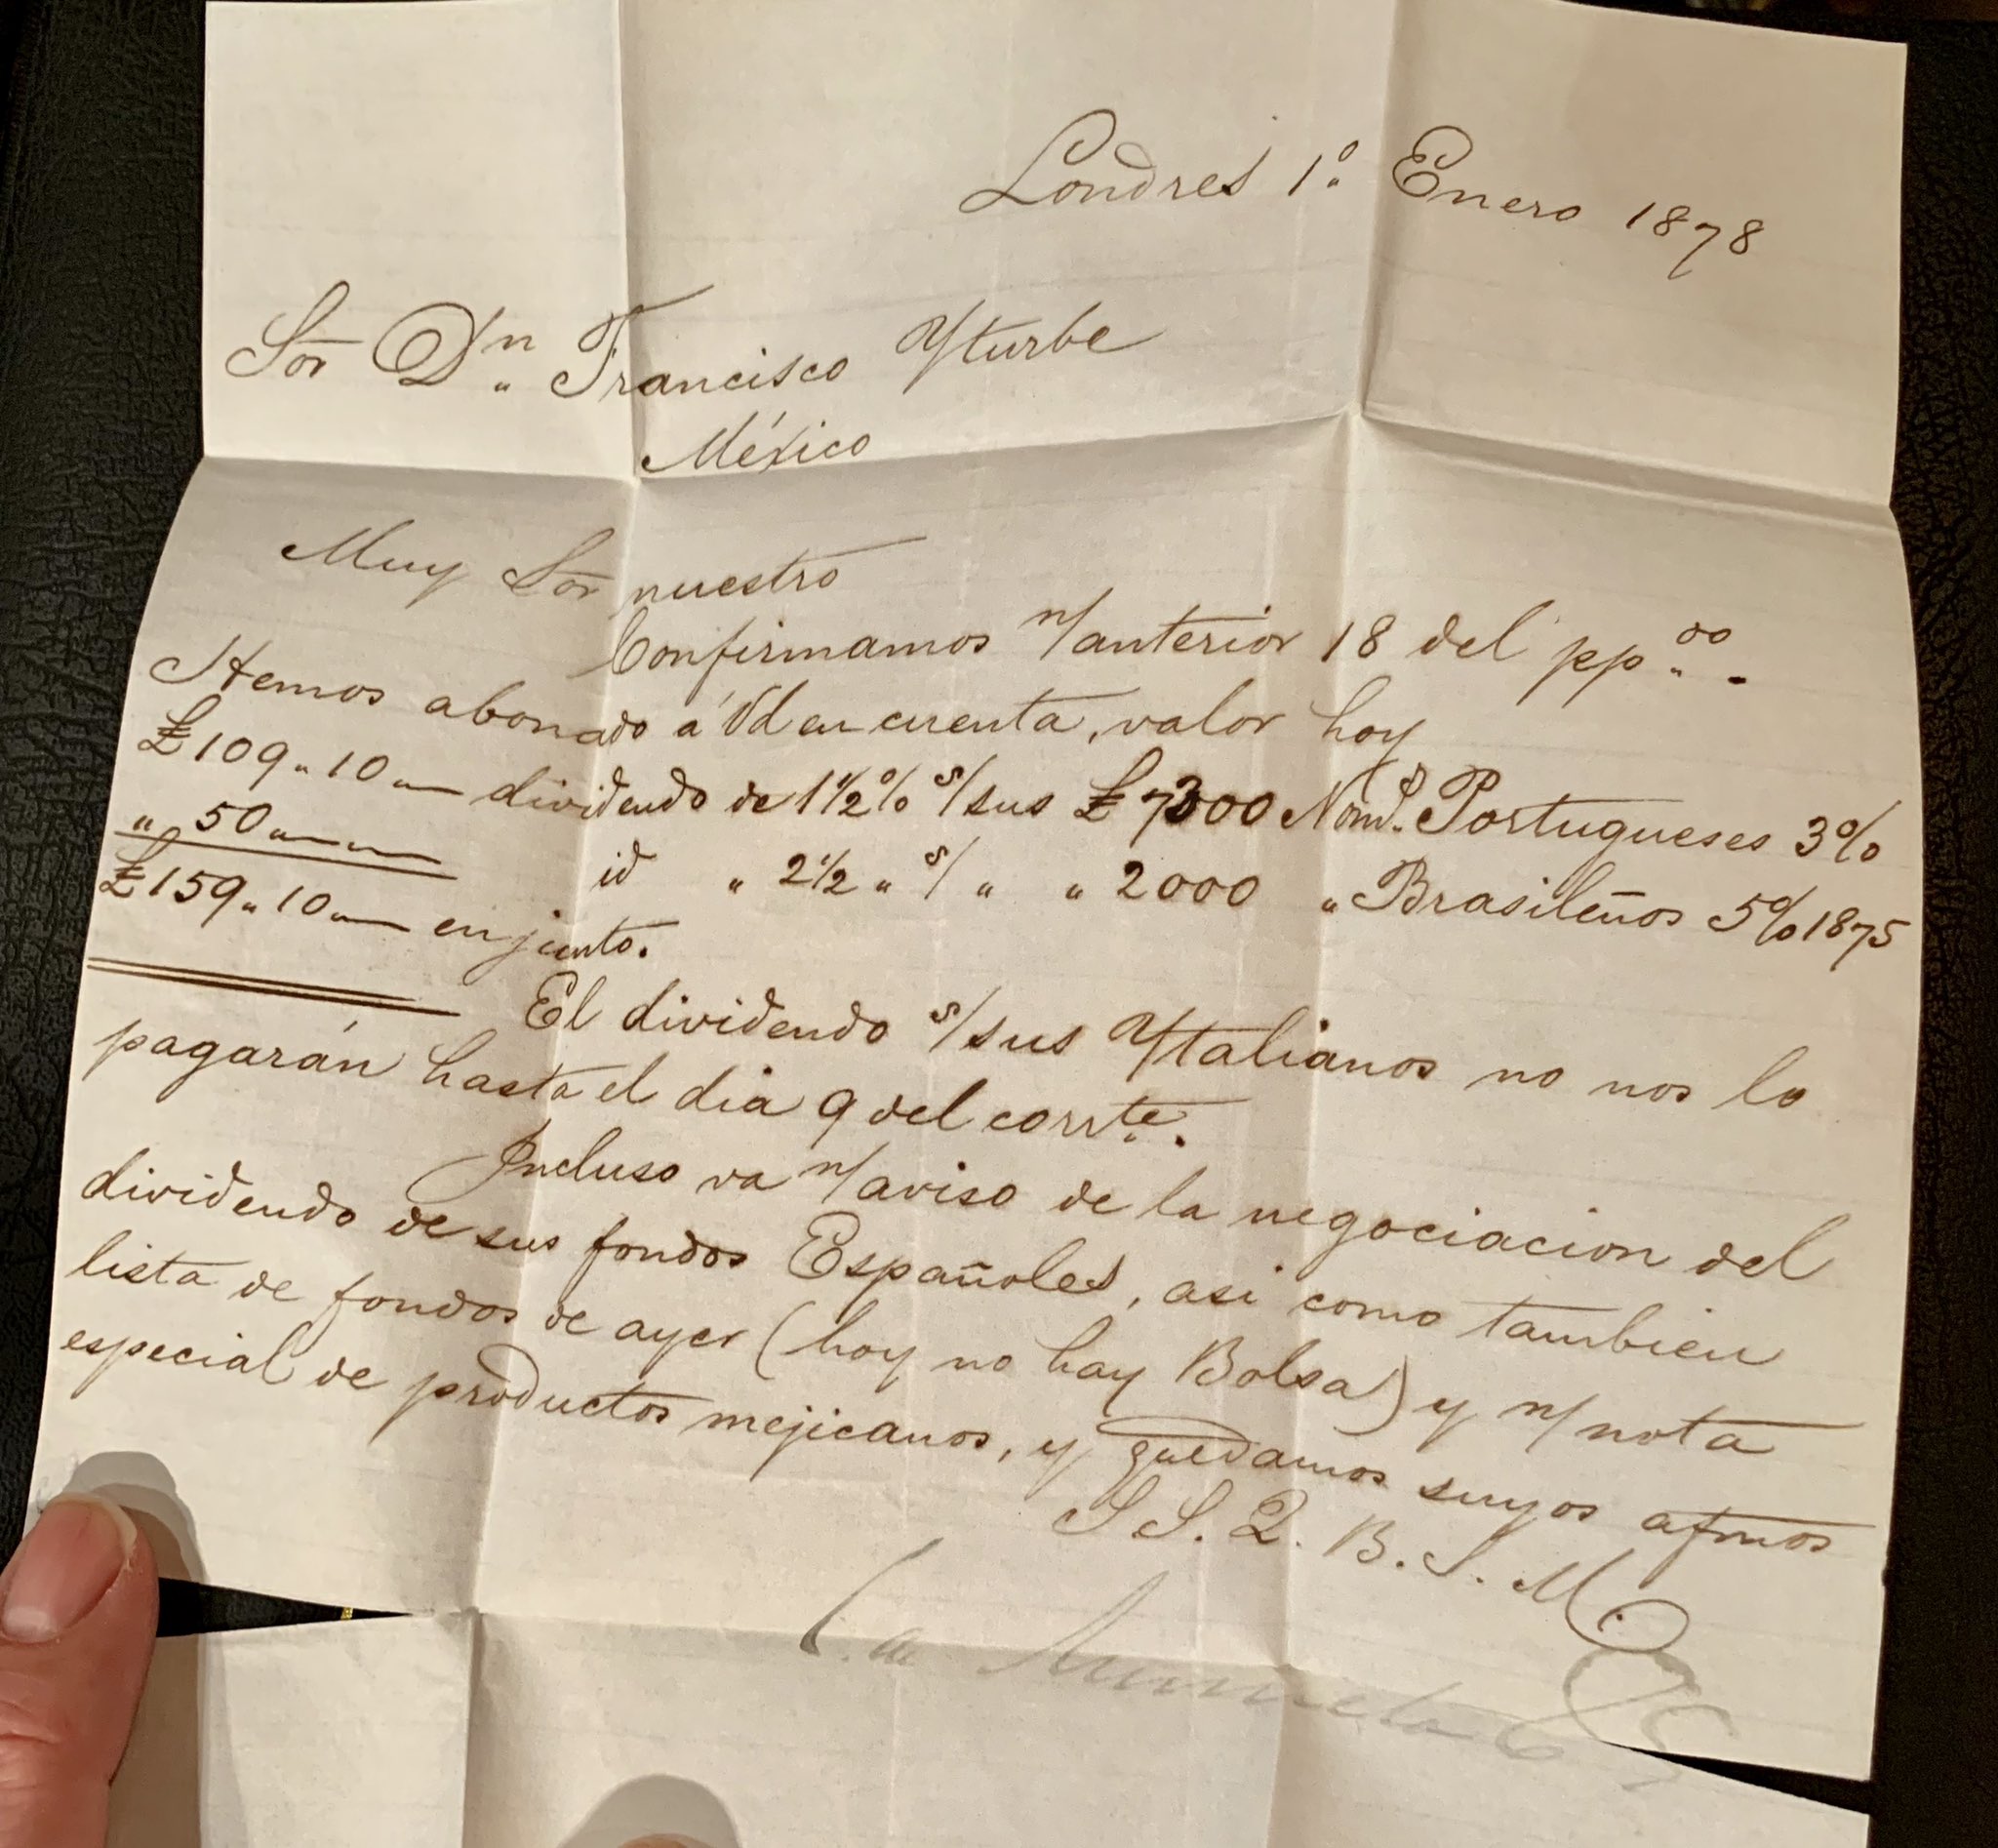 Londres 1º Enero 1878
Sor Dn. Francisco Yturbe
México
Muy Sor nuestro
Confirmamos n/anterior 18 del ppdo.
Hemos abonado á Vd en cuenta, valor hoy
£109 " 10 " — dividendo de 1 1/2 % s/ sus £7300 Nomls. Portugueses 3%
" 50 " — " — id " 2 1/2 " s/ " " 2000 " Brasileños 5% 1875
£159 " 10 " — en junto.
El dividendo s/ sus Ytalianos no nos lo
pagarán hasta el dia 9 del corrte.
Incluso va n/aviso de la negociacion del
dividendo de sus fondos Españoles, asi como tambien
lista de fondos de ayer (hoy no hay Bolsa) y n/nota
especial de productos mejicanos, y quedamos suyos afmos
S S. Q. B. S. M.
C. de Murrieta